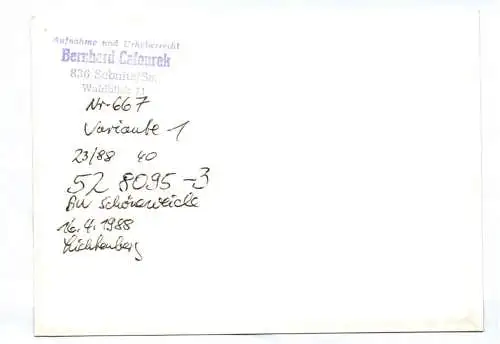 Aufnahme und Urheberrecht
Bernhard Catourek
836 Sebnitz/Sa.
Waldblick 11
Nr. 667
Variante 1
23/88 40
52 8095-3
AW Schöneweide
16.4.1988
Lichtenberg